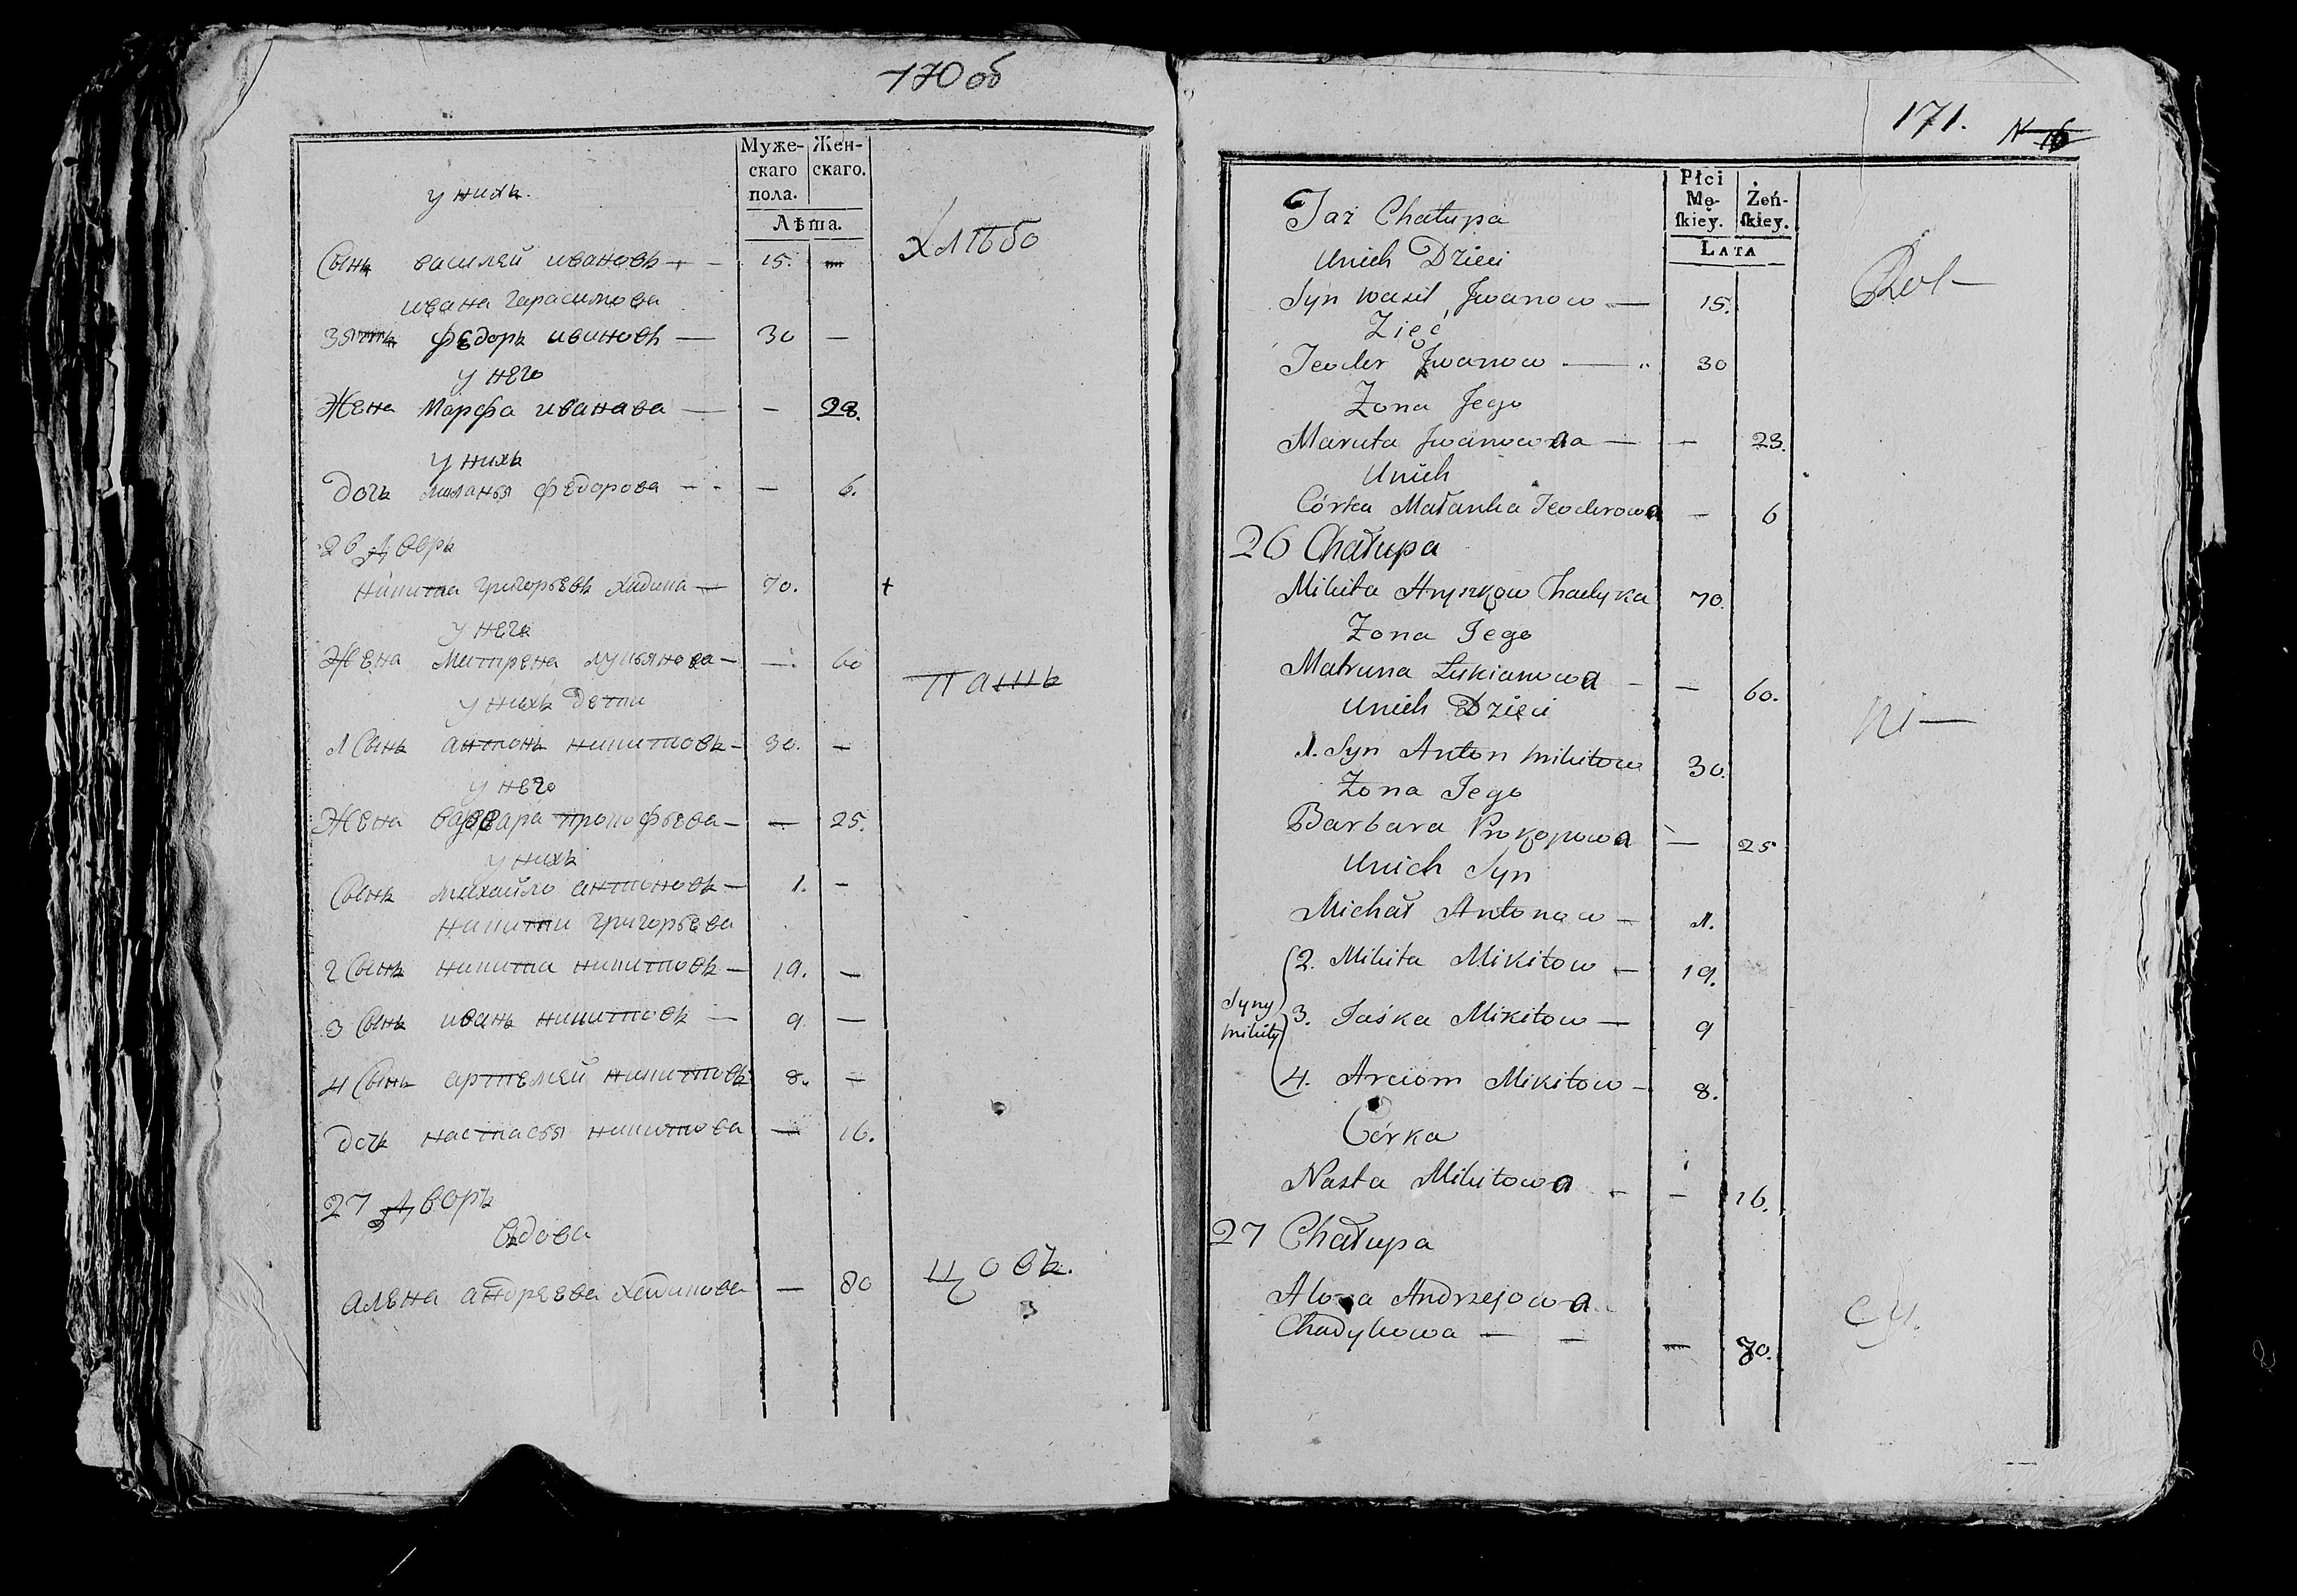 170 об
Муже- Жен-
скаго скаго.
пола.
Лѣта.
у нихъ.
Сынъ василей ивановъ — 15. —
хлѣбо
ивана герасимова
Зять федоръ ивановъ — 30 —
у него
Жена Марфа иванава — — 28.
у нихъ
дочь миланья федорова — — 6.
26 Дворъ
никита григорьевъ хадыка — 70. +
у него
Жена Матрена лукьянова — — 60
пашь
у нихъ дети
1 Сынъ антонъ никитовъ — 30. —
у него
Жена варвара прокофьева — — 25.
у нихъ
Сынъ михайло антоновъ — 1. —
никиты григорьева
2 Сынъ никита никитовъ — 19. —
3 Сынъ иванъ никитовъ — 9 —
4 Сынъ артемей никитовъ 8. —
дочь настасья никитова — 16.
27 Дворъ
вдова
алена андреева хадыкова — 80
цовъ.
171. N 16
Płci
Mę- Żeń-
ſkiey. ſkiey.
LATA
Taż Chałupa
Unich Dzieci
Syn Wasil Jwanow — 15.
Rol—
Zięć
Teoder Jwanow — 30
Żona Jego
Maruta Jwanowna — — 23.
Unich
Córka Małanka Teoderowa — 6
26 Chałupa
Mikita Hryszkow Chadyka 70.
Żona Jego
Matruna Łukianowa — — 60.
Unich Dzieci
ni—
1. Syn Anton Mikitow 30.
Żona Jego
Barbara Prokopowa — 25
Unich Syn
Michał Antonow — 1.
2. Mikita Mikitow — 19.
Syny
Mikity
3. Jaśka Mikitow — 9
4. Arciom Mikitow — 8.
Córka
Nasta Mikitowa — — 16.
27 Chałupa
Alona Andrzejowa
Chadykowa — — — 70.
cy.